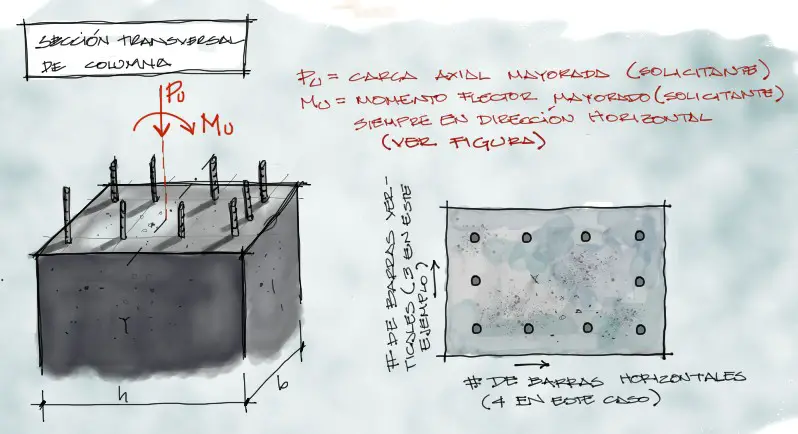 SECCIÓN TRANSVERSAL
DE COLUMNA
PU = CARGA AXIAL MAYORADA (SOLICITANTE)
MU = MOMENTO FLECTOR MAYORADO (SOLICITANTE)
SIEMPRE EN DIRECCIÓN HORIZONTAL
(VER FIGURA)
PU
MU
h
b
# DE BARRAS VER-
TICALES (3 EN ESTE
EJEMPLO)
# DE BARRAS HORIZONTALES
(4 EN ESTE CASO)